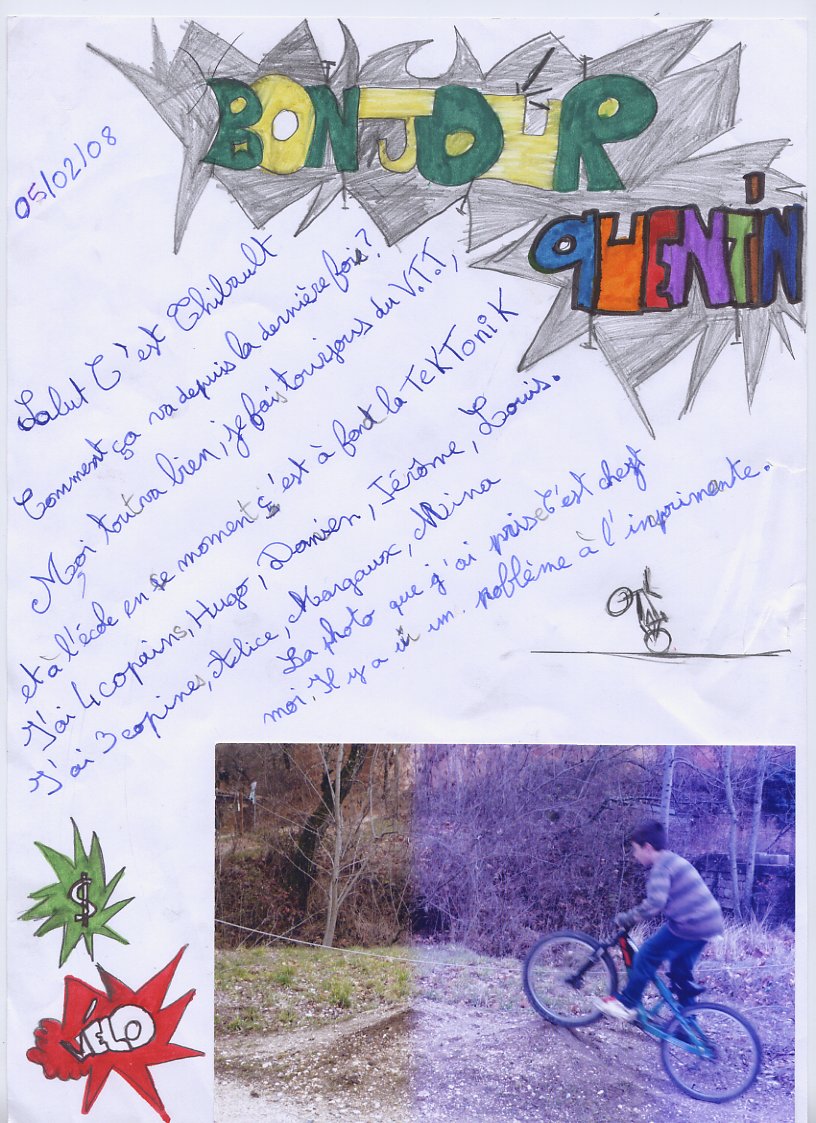 BONJOUR
QUENTIN
05/02/08
Salut C'est Thibault
Comment ça va depuis la dernière fois?
Moi tout va bien, je fais toujours du V.T.T,
et à l'école en se moment c'est à fond la TeKToniK
J'ai 4 copains, Hugo, Damien, Jérôme, Louis.
J'ai 3 copines, Alice, Margaux, Nina
La photo que j'ai prise c'est chez
moi. Il y a un problème à l'imprimante.
$
VELO